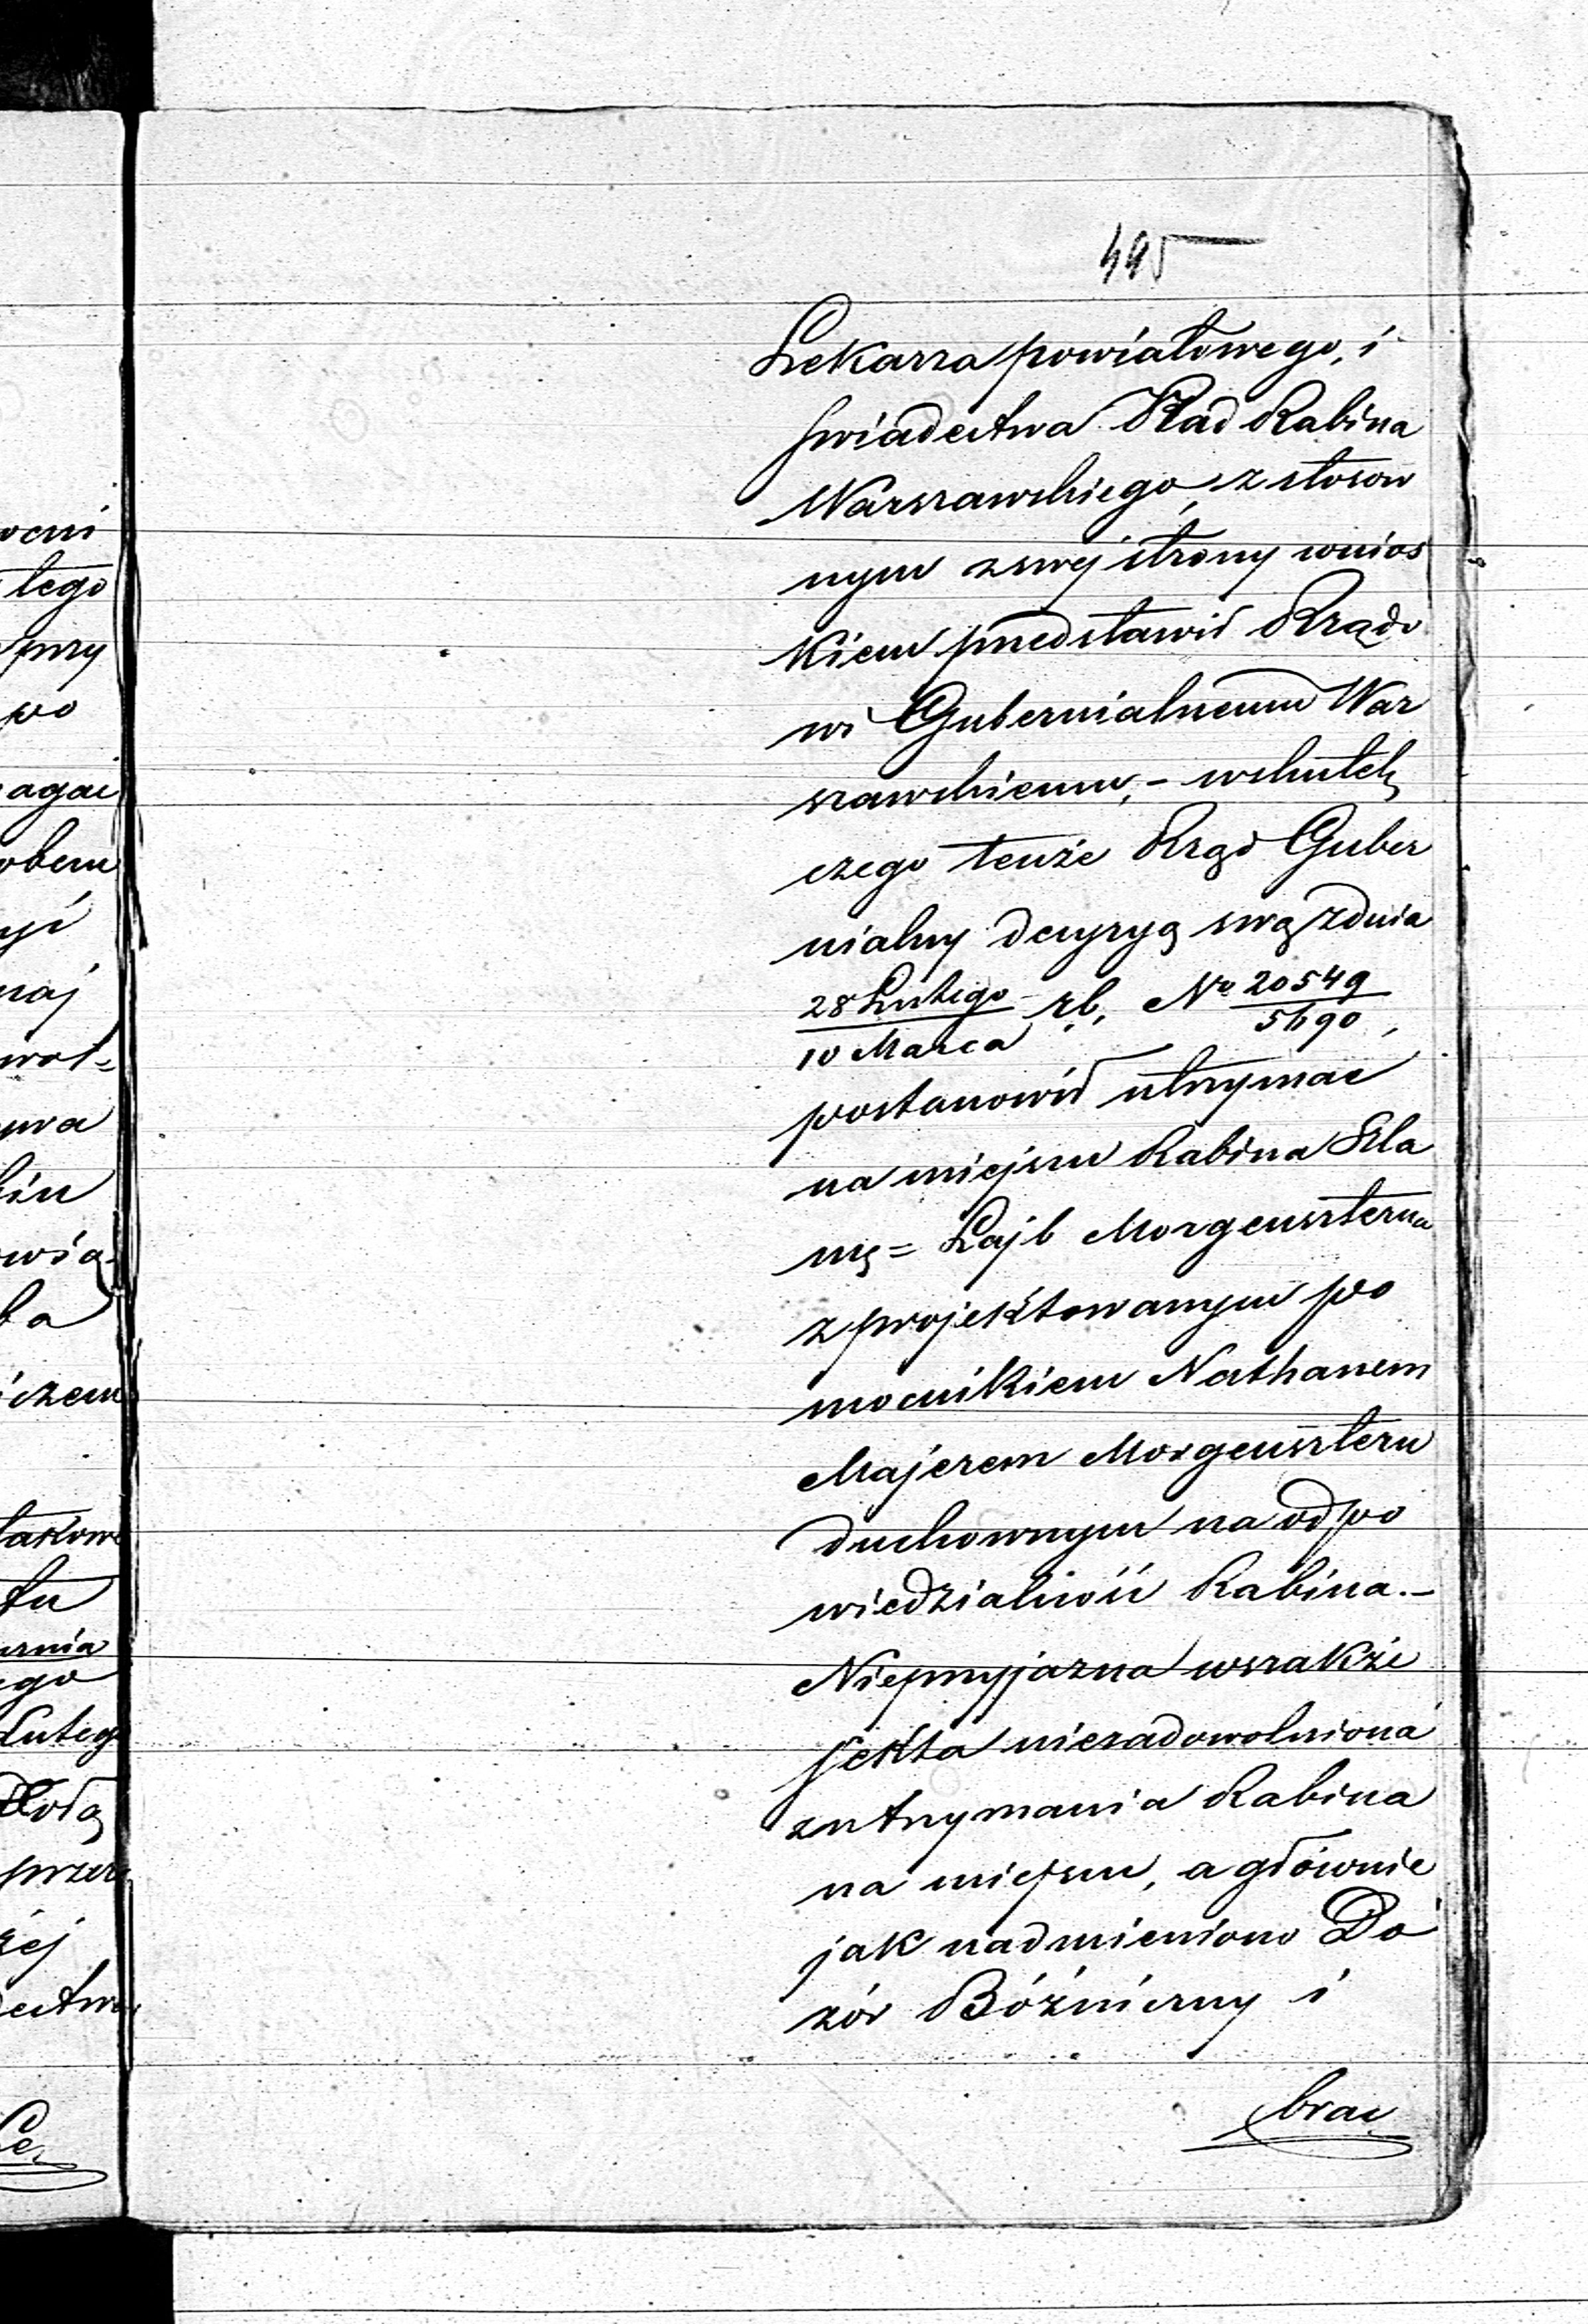 495
Lekarza powiatowego, i
świadectwa Nad Rabina
Warszawskiego, z stosow
nym z swej strony wnios
kiem przedstawił Rządo
wi Gubernialnemu War
szawskiemu, – wskutek
czego tenże Rząd Guber
nialny decyzyą swą z dnia
28 Lutego / 10 Marca r. b. No 20549 / 5690,
postanowił utrzymać
na miejscu Rabina Szla
mę = Lajb Morgenszterna
z projektowanym po
mocnikiem Nathanem
Majerem Morgensztern
duchownym na odpo
wiedzialność Rabina. –
Nieprzyjazna wszakże
sekta niezadowolniona
z utrzymania Rabina
na miejscu, a głównie
jak nadmieniono Do
zór Bóżniczny i
brac
ocni
tego
przy
wo
agać
obem
yi
naj
wol=
wa
bin
wią
ła
iczem
takowe
tu
rnia
ego
Luteg
przez
żej
ectwa
Le